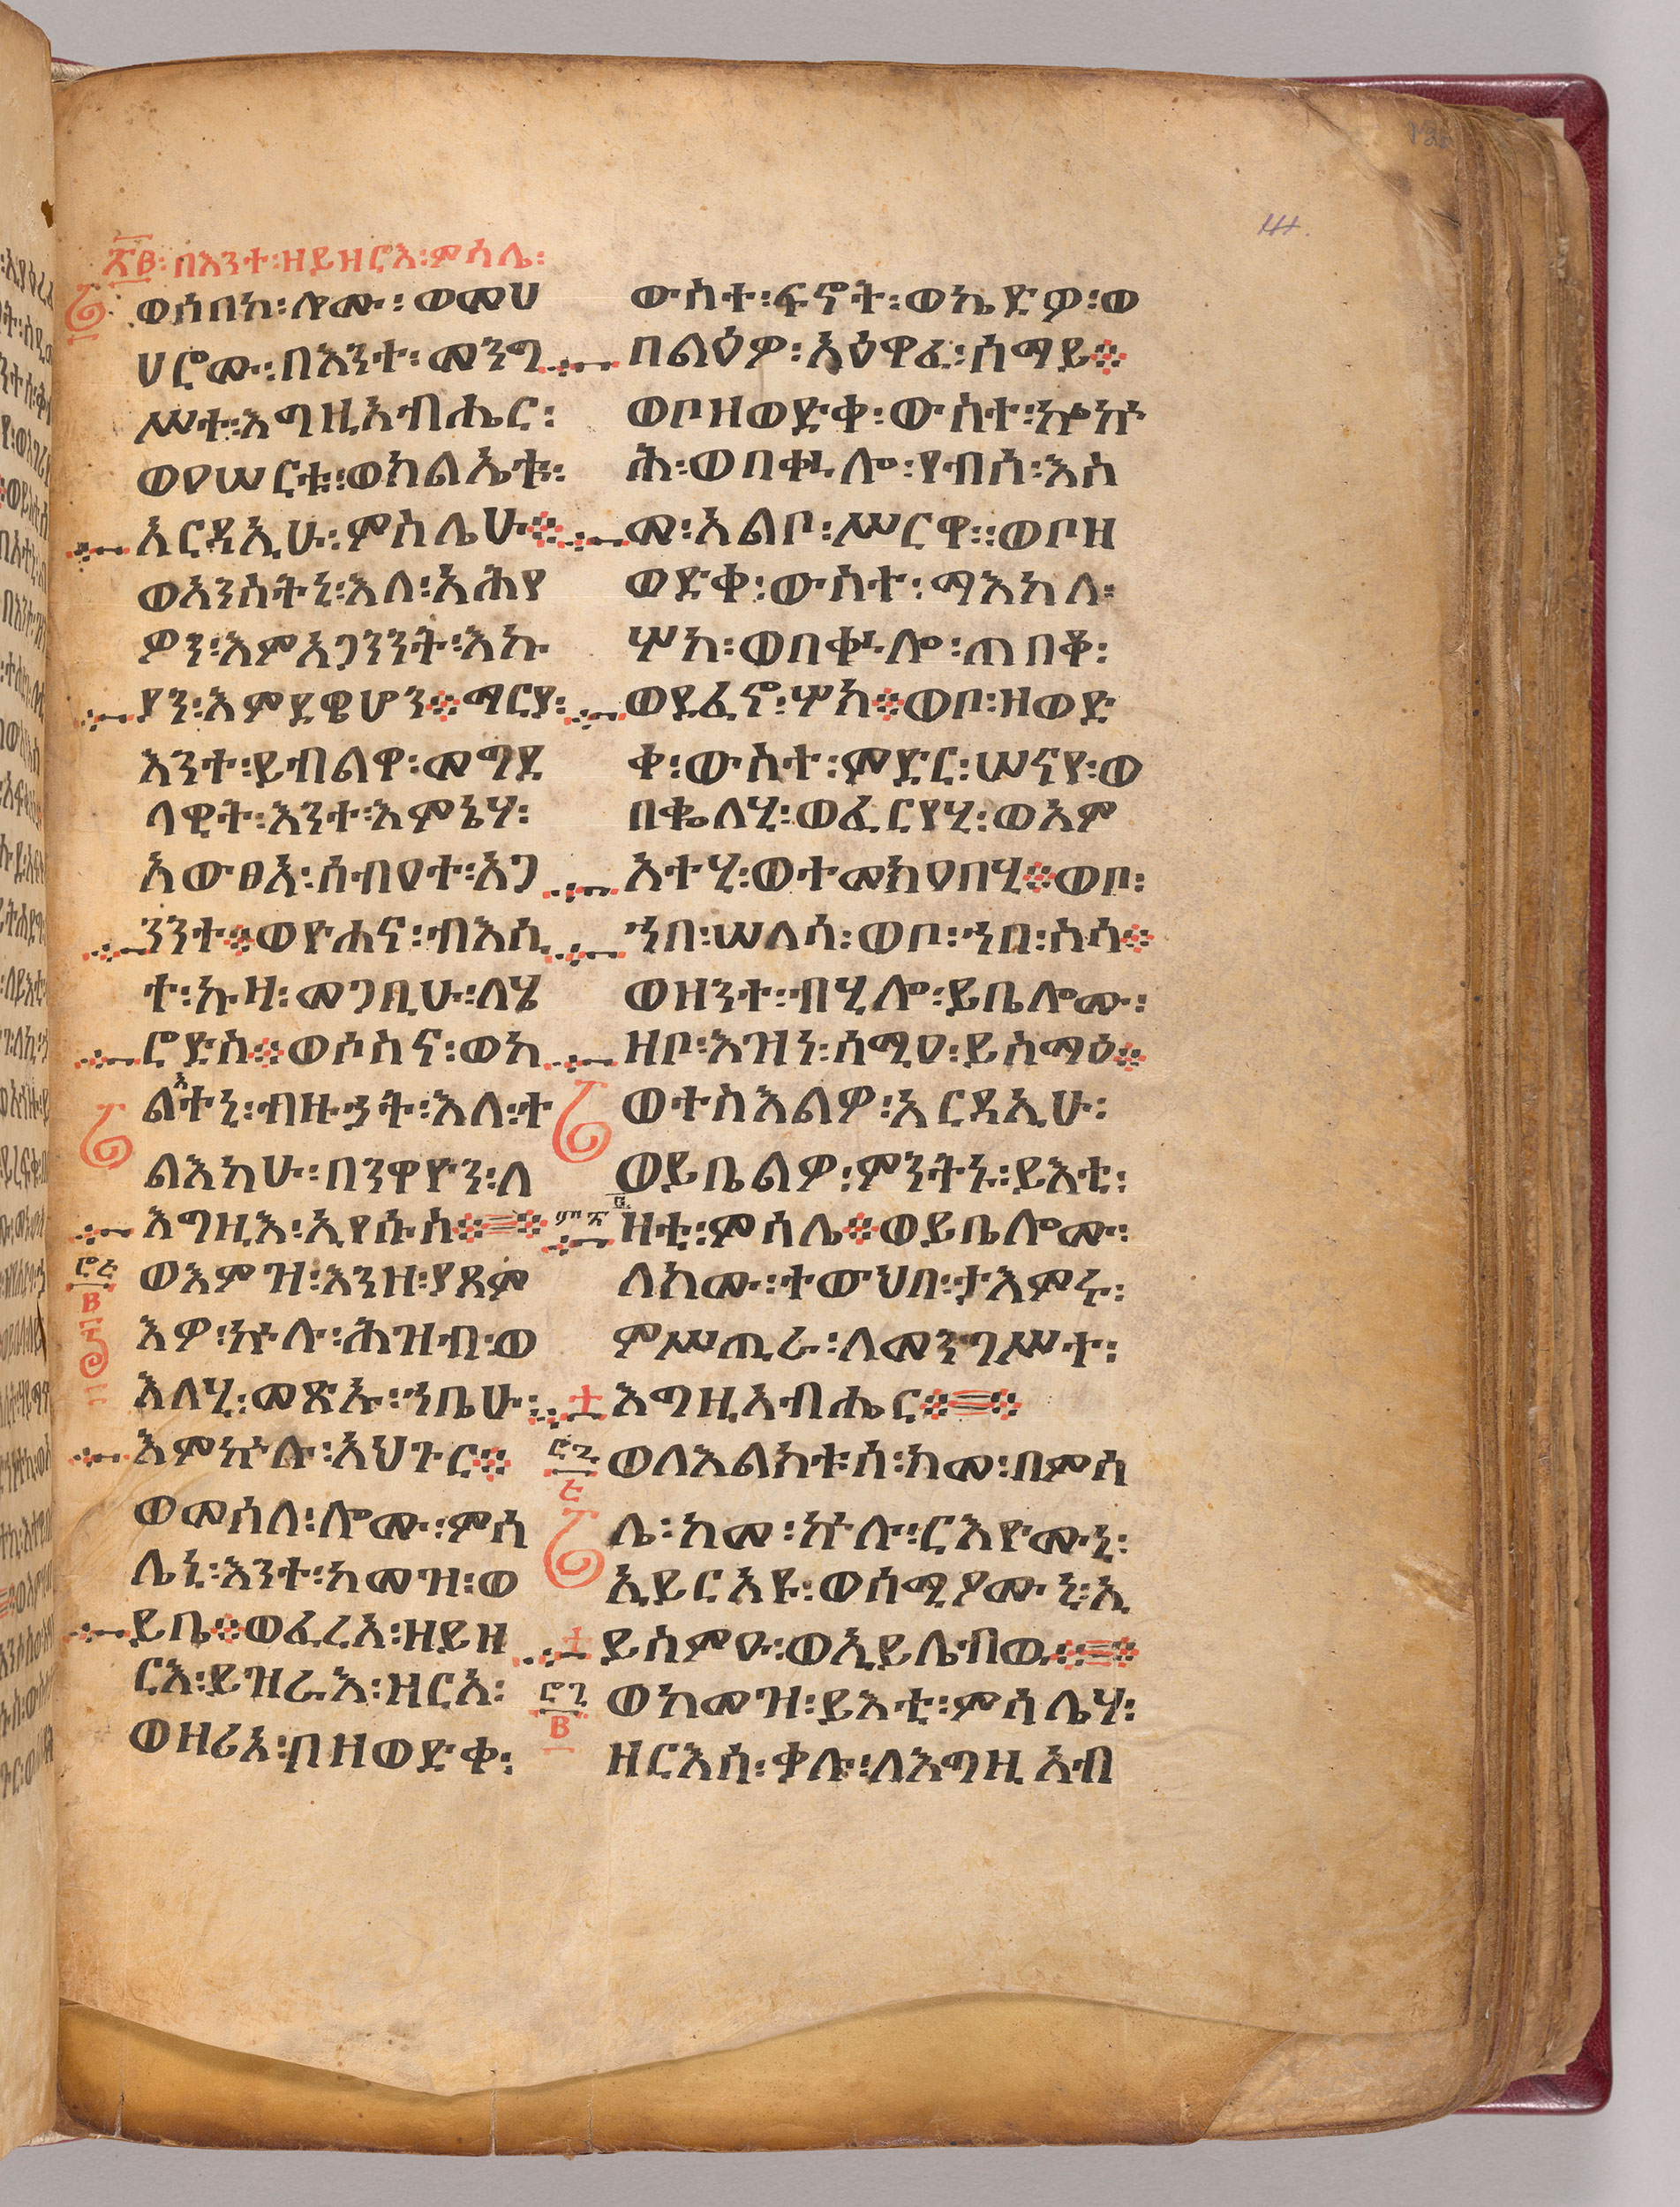 ፳፬፡ በእንተ፡ ዘይዘርእ፡ ምሳሌ፡
ወሰበከ፡ ሎሙ፡ ወመሀ
ሀሮሙ፡ በእንተ፡ መንግ
ሥተ፡ እግዚአብሔር፡
ወዐሠርቱ፡ ወክልኤቱ፡
አርዳኢሁ፡ ምስሌሁ፨
ወአንስትኒ፡ እለ፡ አሕየ
ዎን፡ እምአጋንንት፡ እኩ
ያን፡ እምደዌሆን፨ ማርያ፡
እንተ፡ ይብልዋ፡ መግደ
ላዊት፡ እንተ፡ እምኔሃ፡
አውፀአ፡ ሰብዐተ፡ አጋ
ንንተ፨ ወዮሐና፡ ብእሲ
ተ፡ ኩዛ፡ መጋቢሁ፡ ለሄ
ሮድስ፨ ወሶስና፡ ወካ
ልአተኒ፡ ብዙኃት፡ እለ፡ ተ
ልእካሁ፡ በንዋዮን፡ ለ
እግዚእ፡ ኢየሱስ፨
ወእምዝ፡ እንዘ፡ ያጸም
እዎ፡ ኵሉ፡ ሕዝብ፡ ወ
እለሂ፡ መጽኡ፡ ኀቤሁ፡
እምኵሉ፡ አህጉር፨
ወመሰለ፡ ሎሙ፡ ምሳ
ሌኒ፡ እንተ፡ ከመዝ፡ ወ
ይቤ፨ ወፈረአ፡ ዘይዘ
ርእ፡ ይዝራእ፡ ዘርአ፡
ወዘሪአ፡ ቦዘወድቀ፡
ውስተ፡ ፍኖት፡ ወኬድዎ፡ ወ
በልዕዎ፡ አዕዋፈ፡ ሰማይ፨
ወቦዘወድቀ፡ ውስተ፡ ኰኵ
ሕ፡ ወበቍሎ፡ የብሰ፡ እስ
መ፡ አልቦ፡ ሥርዋ፡፡ ወቦዘ
ወድቀ፡ ውስተ፡ ማእከለ፡
ሦክ፡ ወበቍሎ፡ ጠበቆ፡
ወደፈኖ፡ ሦክ፨ ወቦ፡ ዘወድ
ቀ፡ ውስተ፡ ምድር፡ ሠናየ፡ ወ
በቈለሂ፡ ወፈርየሂ፡ ወአም
አተሂ፡ ወተመክዐበሂ፨ ወቦ፡
ኀበ፡ ሠላሳ፡ ወቦ፡ ኀበ፡ ስሳ፨
ወዘንተ፡ ብሂሎ፡ ይቤሎሙ፡
ዘቦ፡ እዝነ፡ ሰሚዐ፡ ይስማዕ፨
ወተስእልዎ፡ አርዳኢሁ፡
ወይቤልዎ፡ ምንትኑ፡ ይእቲ፡
ዛቲ፡ ምሳሌ፨ ወይቤሎሙ፡
ለክሙ፡ ተውህበ፡ ታእምሩ፡
ምሥጢራ፡ ለመንግሥተ፡
እግዚአብሔር፨
ወለእልክቱሰ፡ ከመ፡ በምሳ
ሌ፡ ከመ፡ ኵሉ፡ ርእዮሙኒ፡
ኢይርአዩ፡ ወሰሚዖሙኒ፡ ኢ
ይስምዑ፡ ወኢይሌብዉ፨
ወከመዝ፡ ይእቲ፡ ምሳሌሃ፡
ዘርእሰ፡ ቃሉ፡ ለእግዚአብ